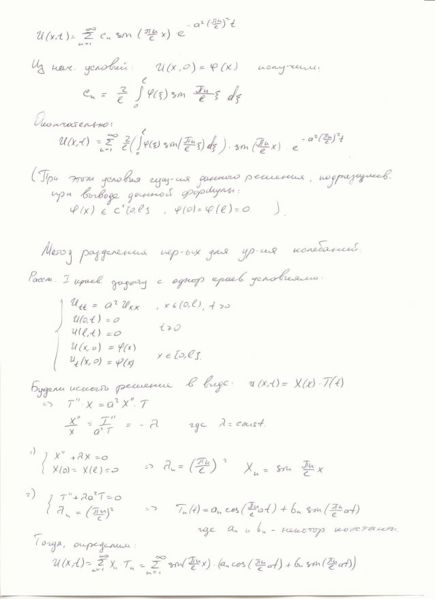 U(x,t) = ∑_{n=1}^∞ c_n sin(πn/ℓ x) e^{-a²(πn/ℓ)²t}
Из нач. условий: U(x,0) = φ(x) получим:
c_n = 2/ℓ ∫_0^ℓ φ(ξ) sin πn/ℓ ξ dξ
Окончательно:
U(x,t) = ∑_{n=1}^∞ 2/ℓ (∫_0^ℓ φ(ξ) sin(πn/ℓ ξ) dξ) · sin(πn/ℓ x) e^{-a²(πn/ℓ)²t}
(При этом условия сущ-ия данного решения, подразумев.
при выводе данной формулы:
φ(x) ∈ C¹[0,ℓ], φ(0)=φ(ℓ)=0 ).
Метод разделения пер-ых для ур-ия колебаний.
Рассм. I краев задачу с однор краев условиями:
U_tt = a² U_xx , x∈(0,ℓ), t>0
U(0,t) = 0
U(ℓ,t) = 0 t>0
U(x,0) = φ(x)
U_t(x,0) = ψ(x) x∈[0,ℓ]
Будем искать решение в виде: u(x,t) = X(x)·T(t)
⇒ T''·X = a² X''·T
X''/X = T''/a²T = -λ где λ=const.
1) { X''+λX=0
X(0)=X(ℓ)=0 ⇒ λ_n = (πn/ℓ)² X_n = sin πn/ℓ x
2) { T''+λa²T=0
λ_n = (πn/ℓ)² ⇒ T_n(t) = a_n cos(πn/ℓ at) + b_n sin(πn/ℓ at)
где a_n и b_n - некотор константы.
Тогда, определим:
U(x,t) = ∑_{n=1}^∞ X_n T_n = ∑_{n=1}^∞ sin(πn/ℓ x)·(a_n cos(πn/ℓ at) + b_n sin(πn/ℓ at))